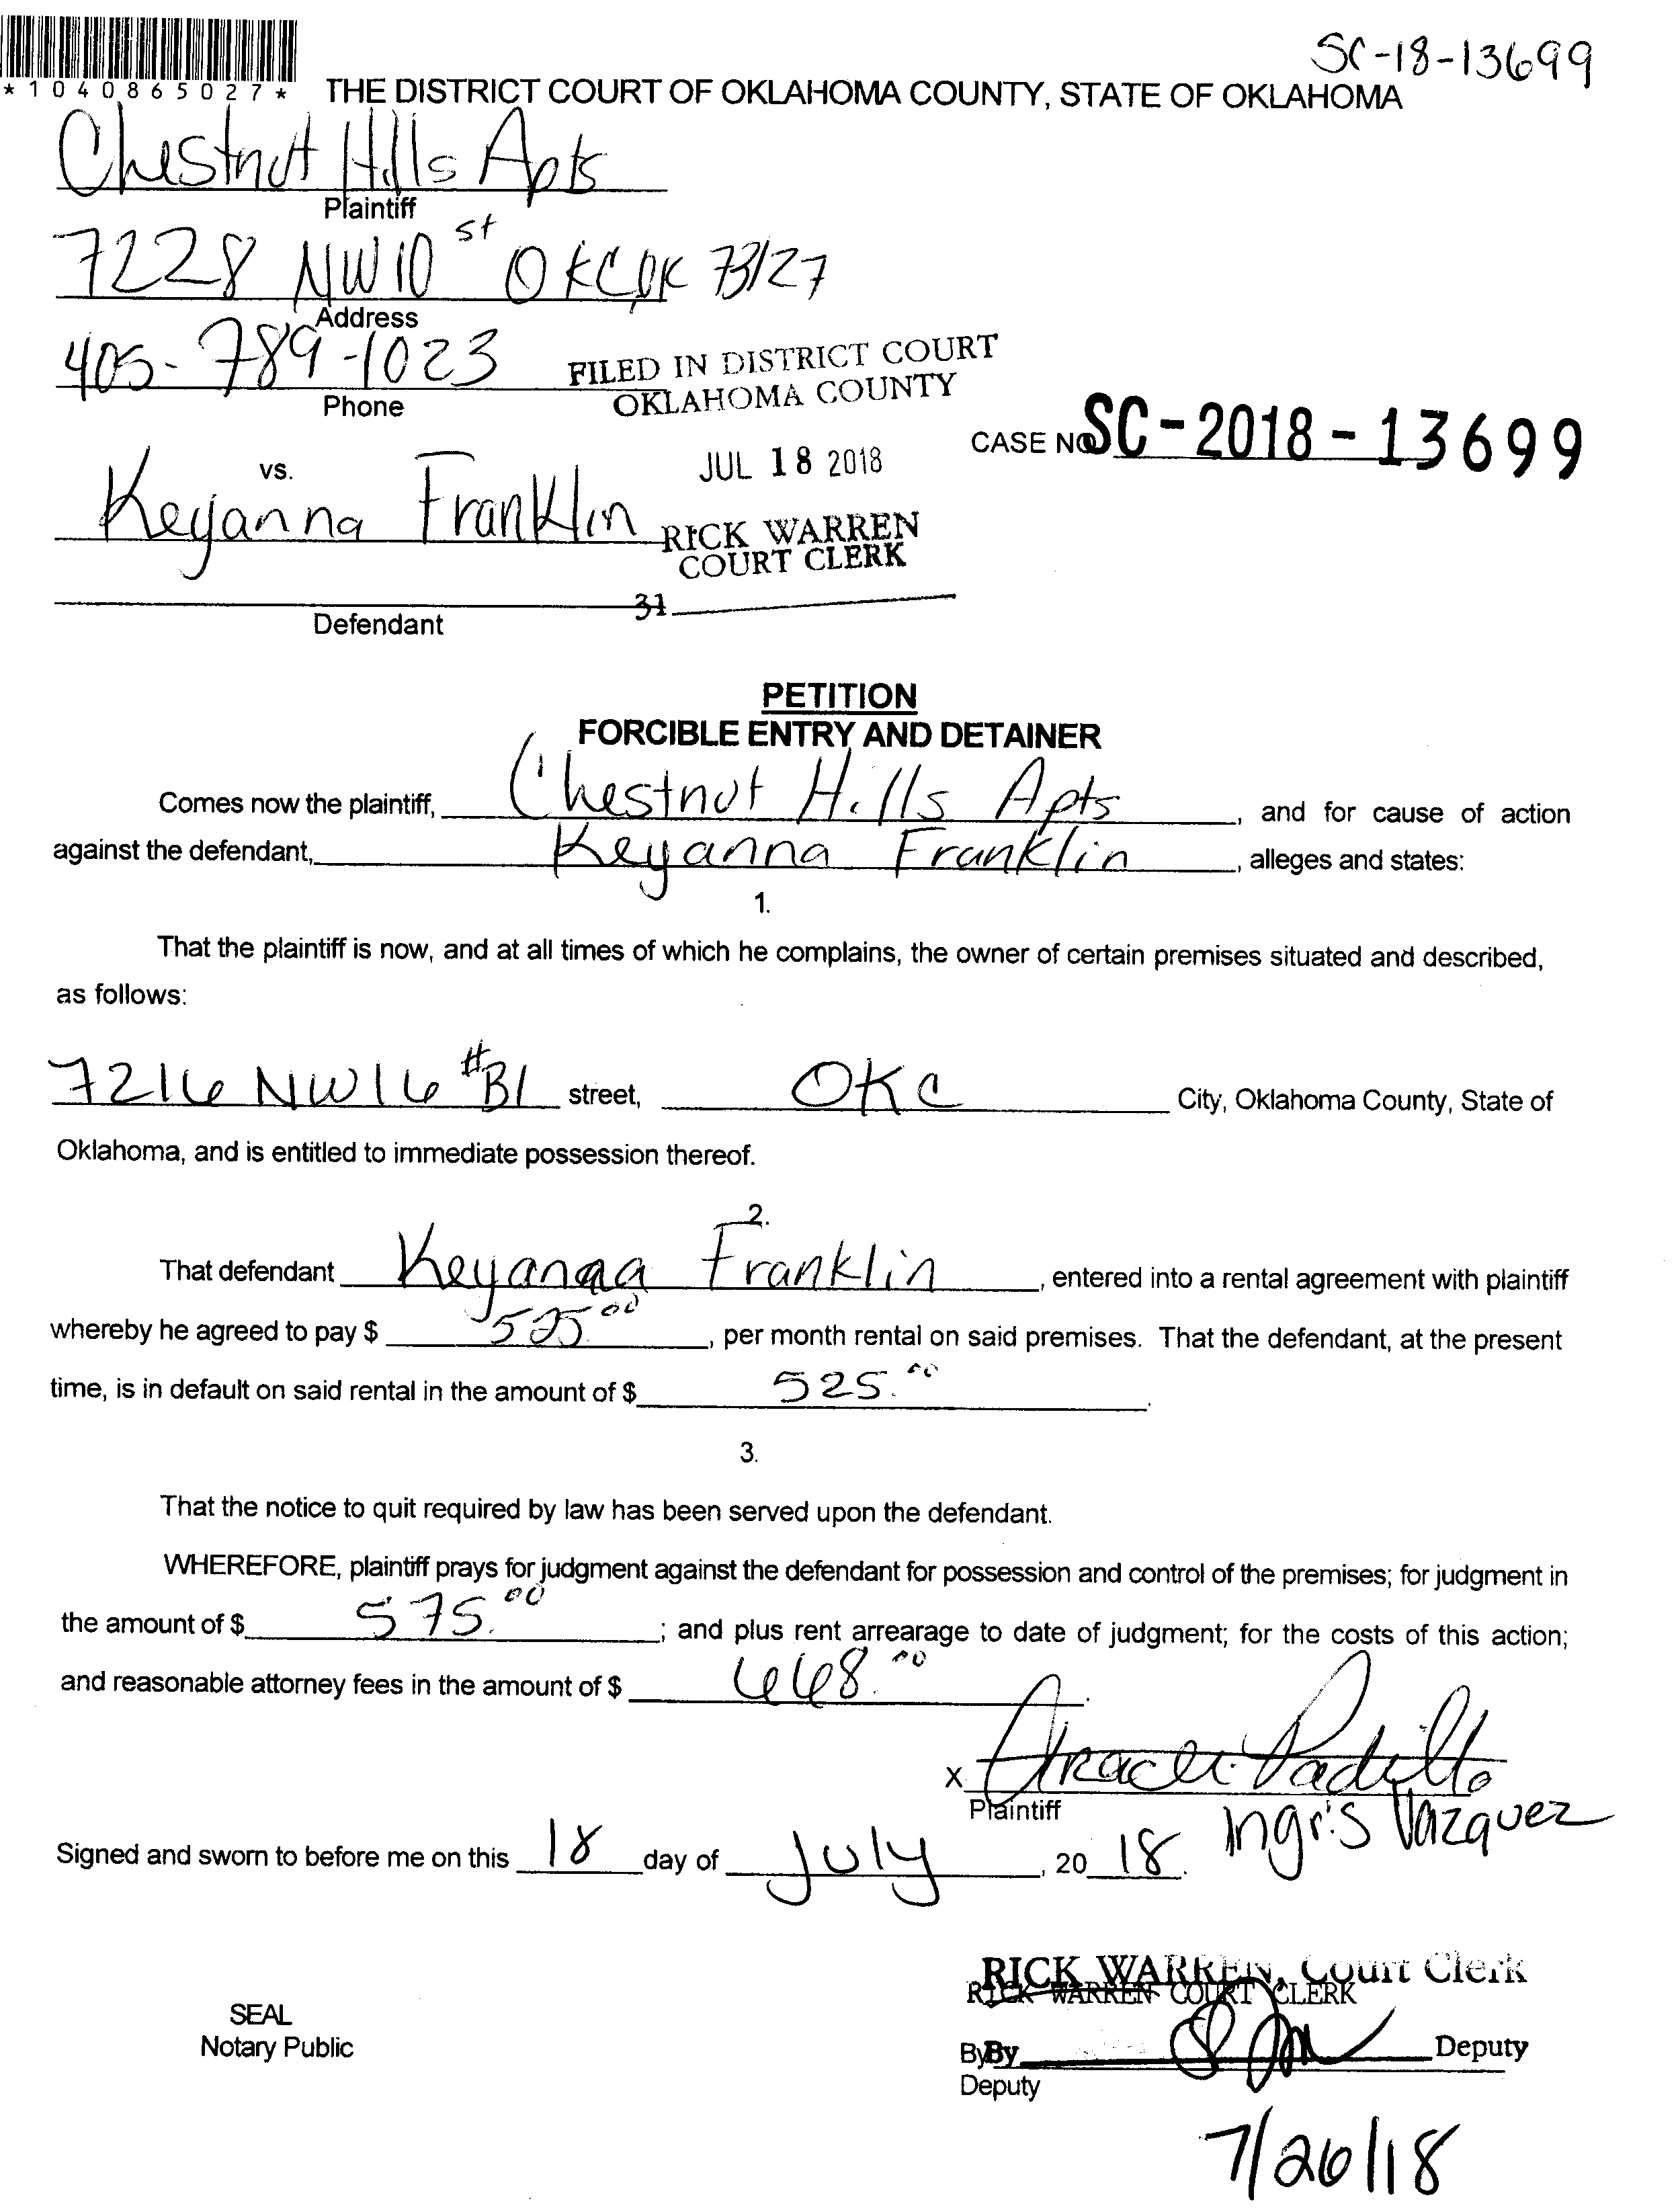 SC-18-13699
*1040865027*
THE DISTRICT COURT OF OKLAHOMA COUNTY, STATE OF OKLAHOMA
Chestnut Hills Apts
Plaintiff
7228 NW 10 st OKC, OK 73127
Address
405-789-1023
Phone
FILED IN DISTRICT COURT
OKLAHOMA COUNTY
JUL 18 2018
CASE NO. SC-2018-13699
vs.
Keyanna Franklin
RICK WARREN
COURT CLERK
31
Defendant
PETITION
FORCIBLE ENTRY AND DETAINER
Comes now the plaintiff, Chestnut Hills Apts, and for cause of action
against the defendant, Keyanna Franklin, alleges and states:
1.
That the plaintiff is now, and at all times of which he complains, the owner of certain premises situated and described,
as follows:
7216 NW 16 #B1 street, OKC City, Oklahoma County, State of
Oklahoma, and is entitled to immediate possession thereof.
2.
That defendant Keyanna Franklin, entered into a rental agreement with plaintiff
whereby he agreed to pay $ 525.00, per month rental on said premises. That the defendant, at the present
time, is in default on said rental in the amount of $ 525.00.
3.
That the notice to quit required by law has been served upon the defendant.
WHEREFORE, plaintiff prays for judgment against the defendant for possession and control of the premises; for judgment in
the amount of $ 575.00; and plus rent arrearage to date of judgment; for the costs of this action;
and reasonable attorney fees in the amount of $ 668.00.
X Araceli Padilla
Plaintiff
Ingris Vazquez
Signed and sworn to before me on this 18 day of July, 20 18.
RICK WARREN, Court Clerk
RICK WARREN COURT CLERK
SEAL
Notary Public
By By Deputy
Deputy
7/26/18